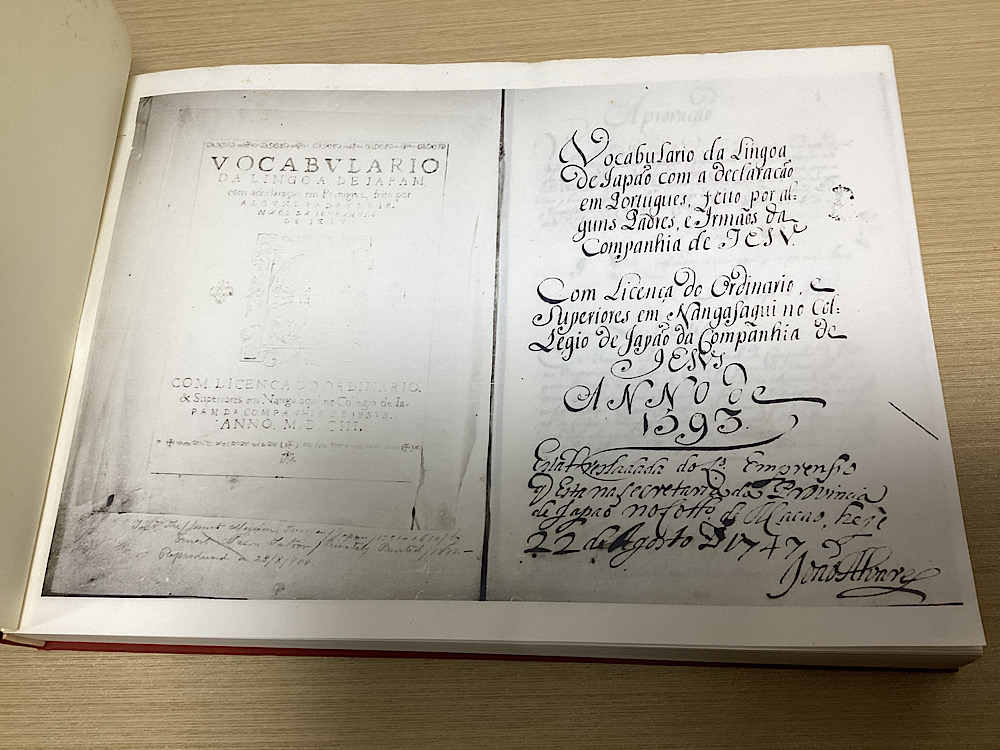 VOCABVLARIO
DA LINGOA DE IAPAM
com a declaração em Portugues, feito por
ALGVNS PADRES, E IR-
MAÕS DA COMPANHIA
DE IESV.
COM LICENÇA DO ORDINARIO,
& Superiores em Nangasaqui no Collegio de Ia-
PAM DA COMPANHIA DE IESVS.
ANNO. M. D. CIII.
The Jesuit Mission Press in Japan 1591-1610 by
Ernest Mason Satow / Privately Printed / 1888
Reproduced a 28/X/904
Aprovação
Vocabulario da Lingoa
de Iapão com a declaração
em Portugues, feito por al-
guns Padres, e Irmãos da
Companhia de IESV.
Com Licença do Ordinario, e
Superiores em Nangasaqui no Col-
legio de Japão da Companhia de
IESVS
ANNO de
1593.
Està tresladada do L.º Emprensso
q̃ està na secretaria da Provincia
de Japaõ no sotto de Macao, hoje
22 de Agosto D 1747
João Alvares